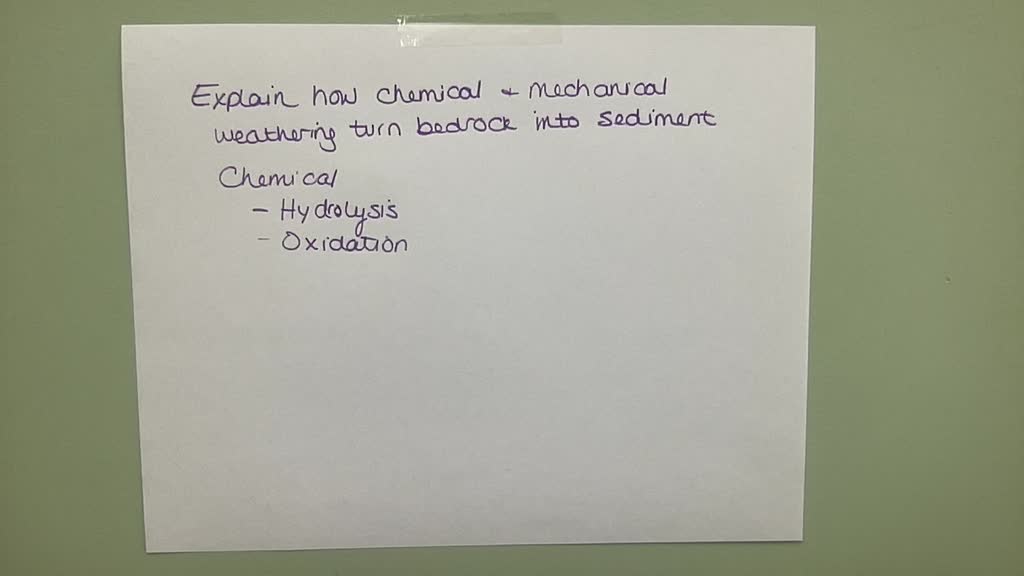 Explain how chemical + mechanical
weathering turn bedrock into sediment
Chemical
- Hydrolysis
- Oxidation